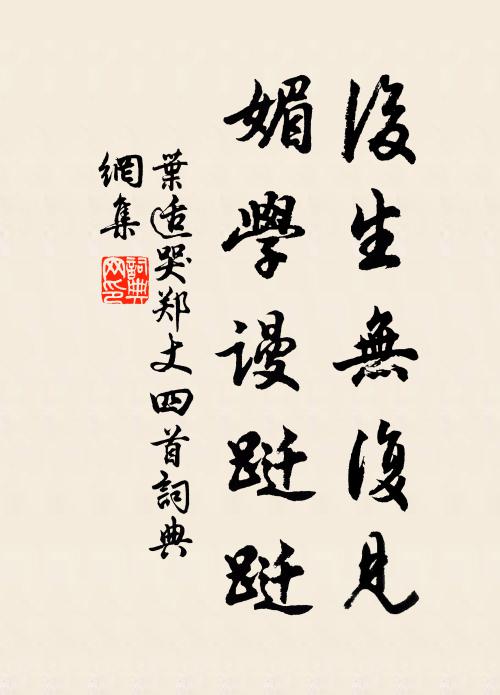 後生無復見
媚學謾跹跹
葉适哭郑丈四首詞典
網集
詞典
网印